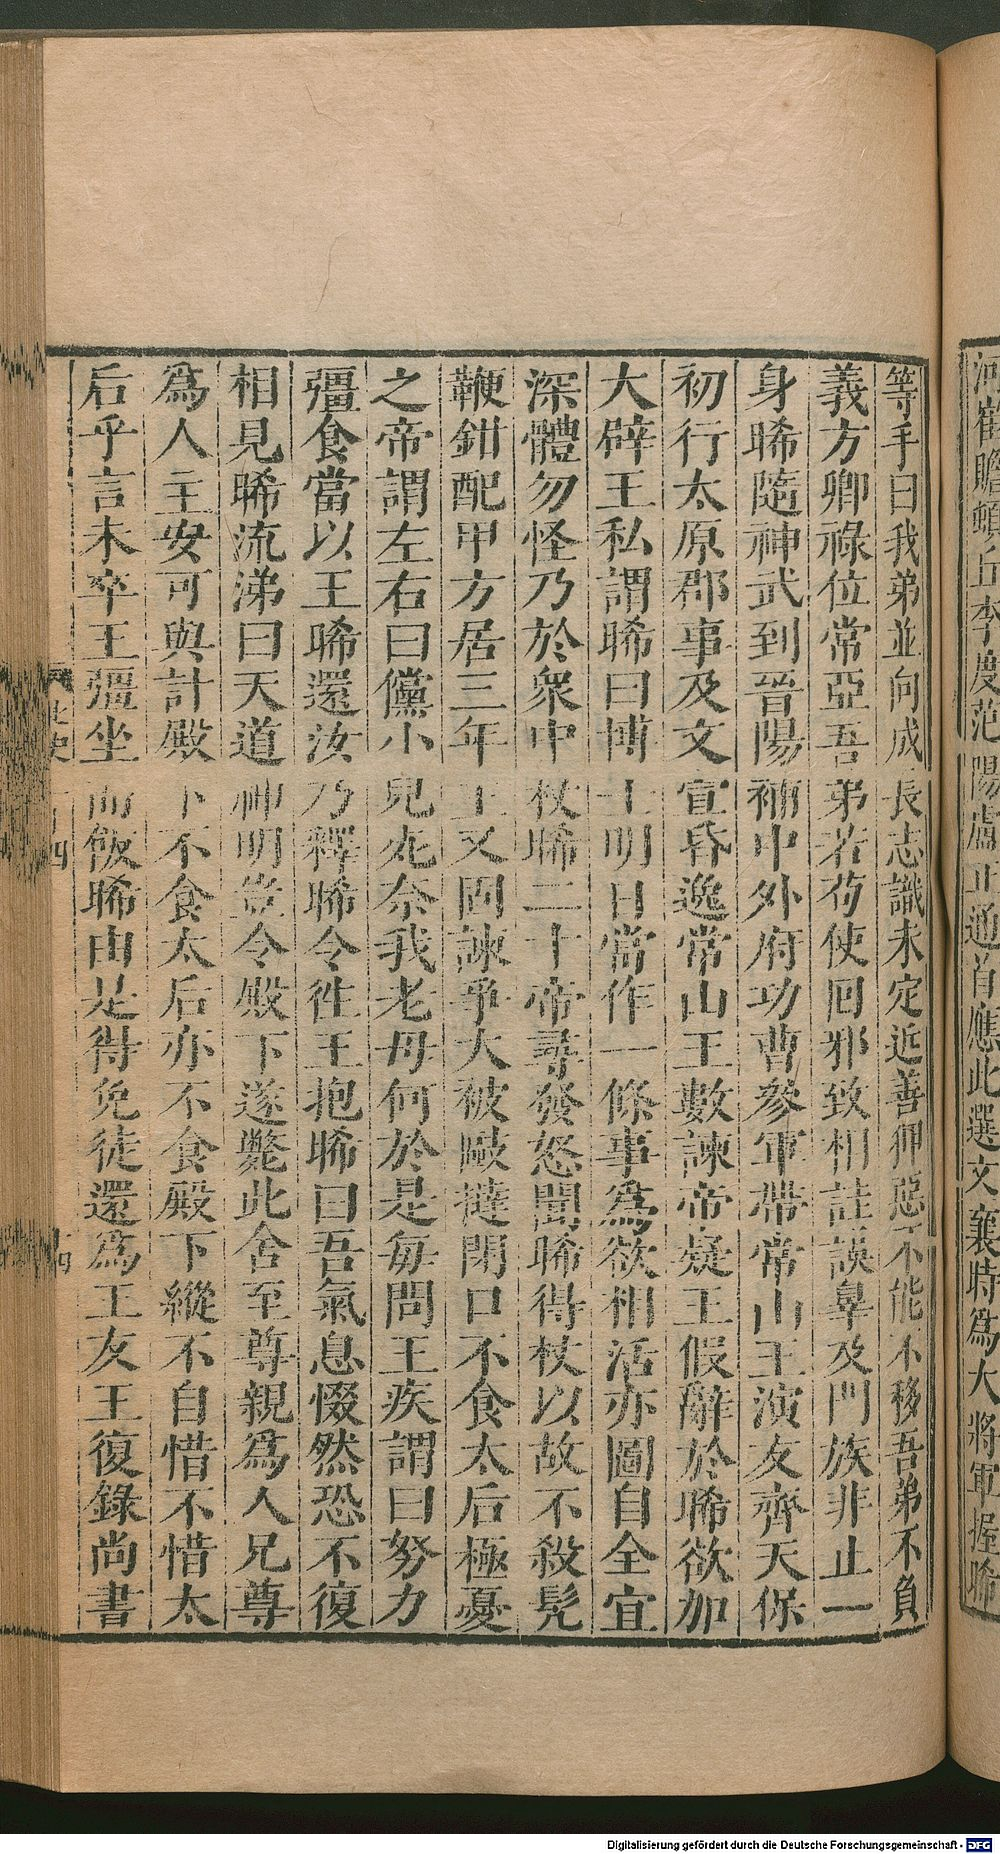 河崔贍頓丘李度范陽盧正通首應此選文襄時爲大將軍握晞
等手曰我弟並向成長志識未定近善狎惡不能不移吾弟不負
義方卿祿位常亞吾弟若苟使回邪致相詿誤辠及門族非止一
身晞隨神武到晉陽補中外府功曹參軍帶常山王演友齊天保
初行太原郡事及文宣昏逸常山王數諫帝疑王假辭於晞欲加
大辟王私謂晞曰博士明日當作一條事爲欲相活亦圖自全宜
深體勿怪乃於衆中杖晞二十帝尋發怒聞晞得杖以故不殺髠
鞭鉗配甲方居三年王又固諫爭大被敺撻閉口不食太后極憂
之帝謂左右曰儻小兒死奈我老母何於是每問王疾謂曰努力
彊食當以王晞還汝乃釋晞令徃王抱晞曰吾氣息惙然恐不復
相見晞流涕曰天道神明豈令殿下遂斃此舍至尊親爲人兄尊
爲人主安可與計殿下不食太后亦不食殿下縱不自惜不惜太
后乎言未卒王彊坐而飯晞由是得免徒還爲王友王復錄尚書
Digitalisierung gefördert durch die Deutsche Forschungsgemeinschaft - DFG